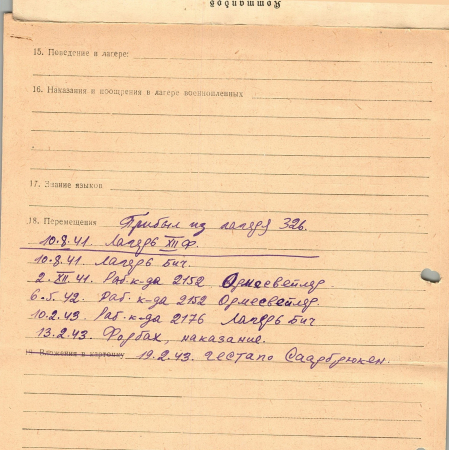 15. Поведение в лагере:
16. Наказания и поощрения в лагере военнопленных
17. Знание языков
18. Перемещения Прибыл из лагеря 326.
10.8.41. Лагерь XII Ф.
10.8.41. Лагерь Бич.
2.XII.41. Раб. к-да 2152 Ормесвейлер
6.5.42. Раб. к-да 2152 Ормесвейлер
10.2.43. Раб. к-да 2176 Лагерь Бич
13.2.43. Форбах, наказание.
19.2.43. гестапо Саарбрюкен.